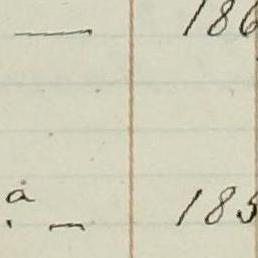 — 186
a — 185